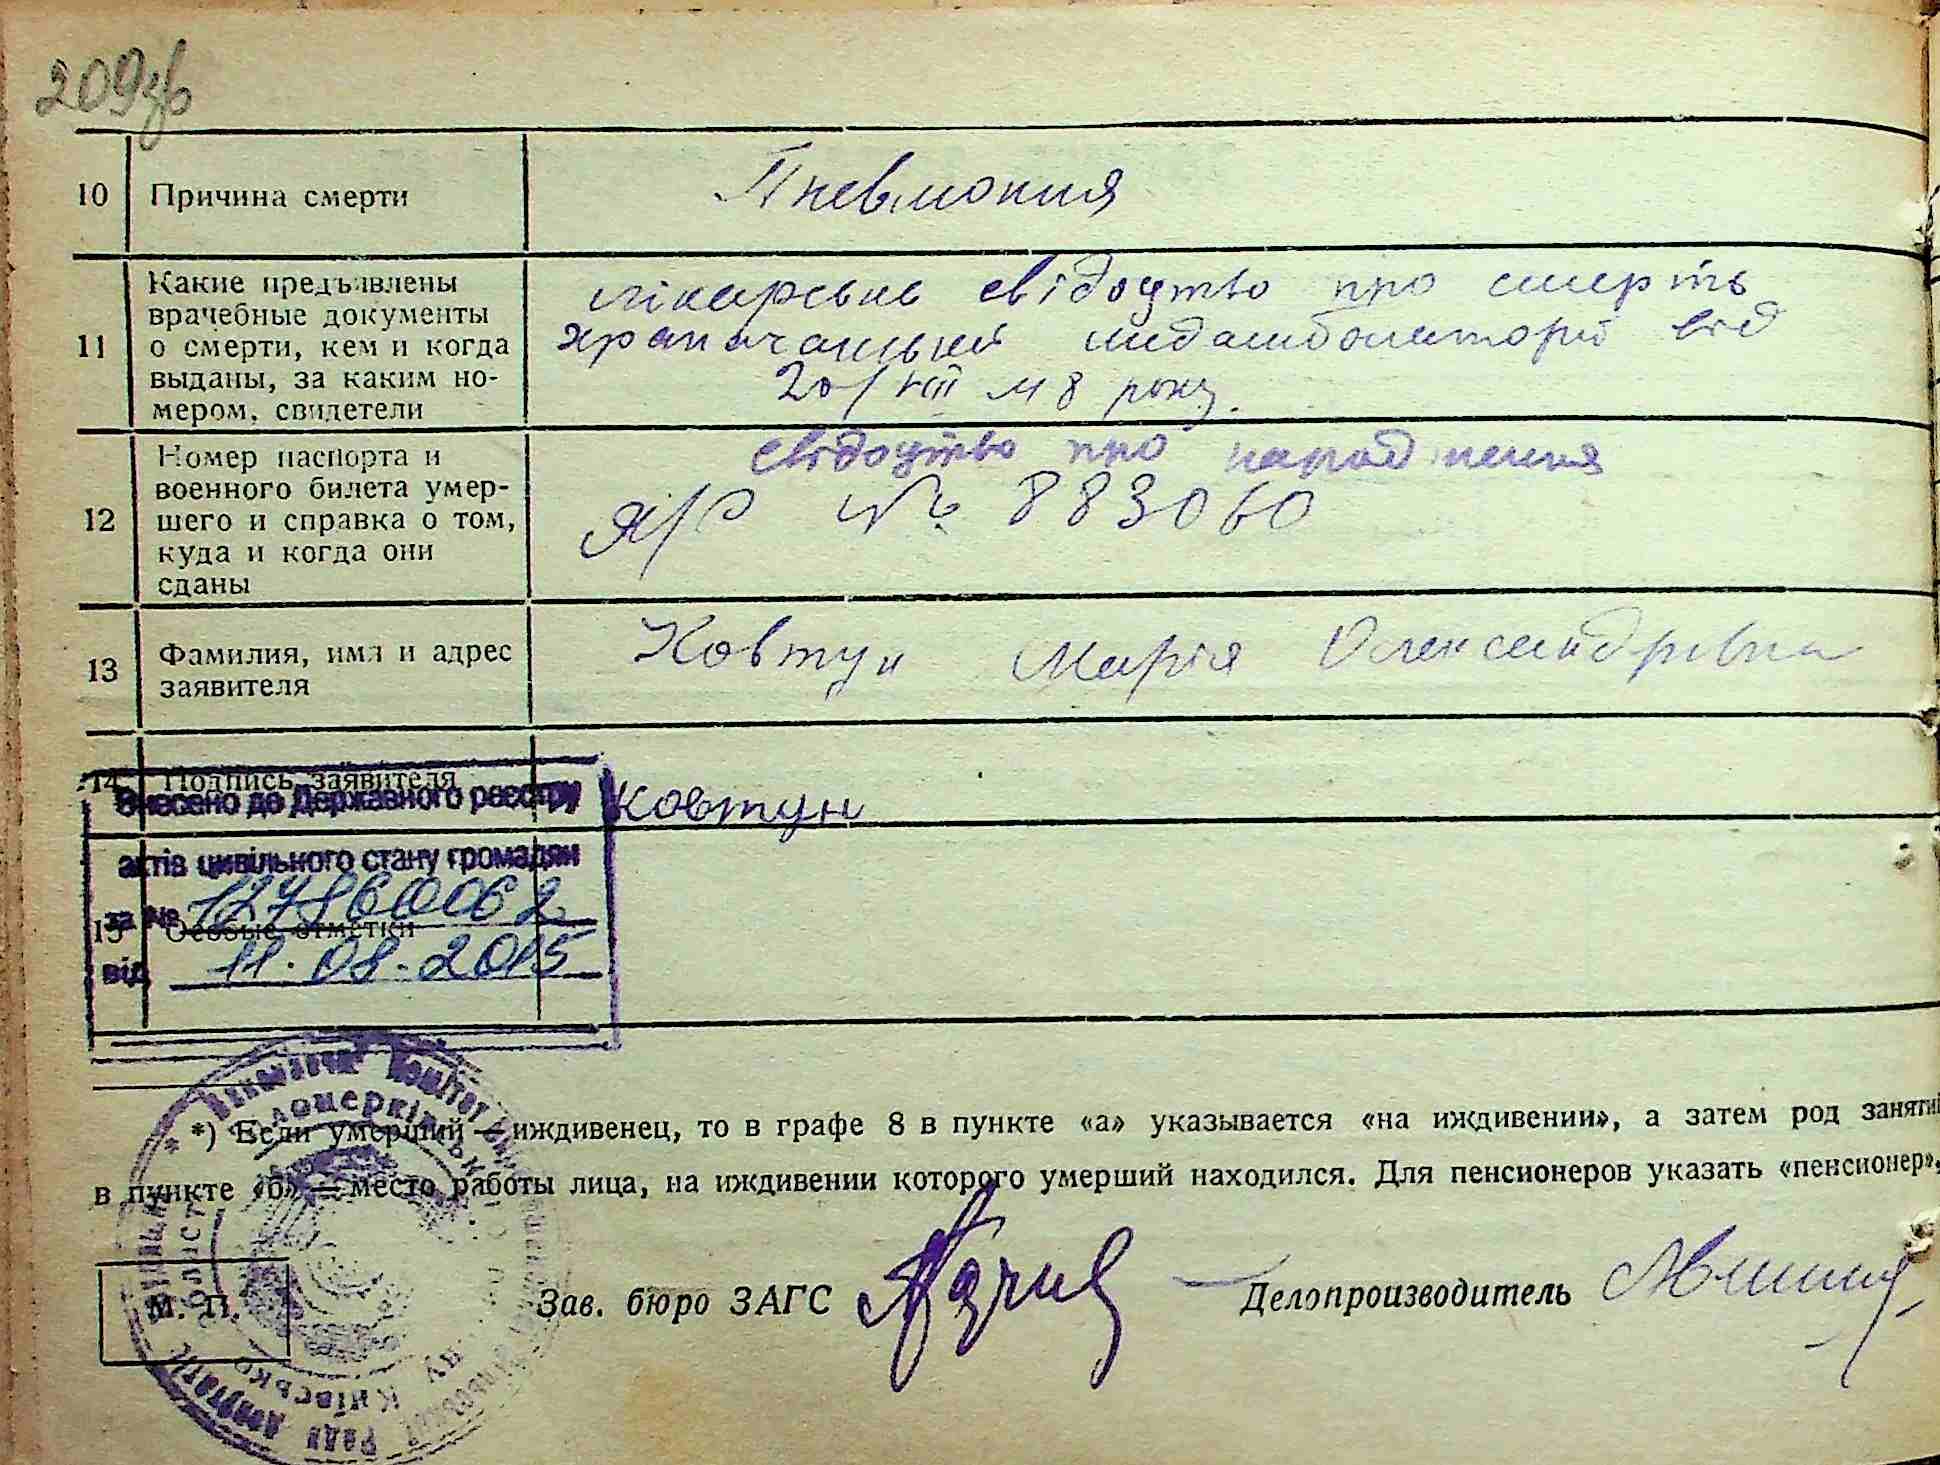 209зв
10 Причина смерти Пневмония
11 Какие предъявлены врачебные документы о смерти, кем и когда выданы, за каким номером, свидетели
лікарське свідоцтво про смерть
від
20/VIII
року.
12 Номер паспорта и военного билета умершего и справка о том, куда и когда они сданы
свідоцтво про народження
№ 883060
13 Фамилия, имя и адрес заявителя Ковтун Марія Олександрівна
14 Подпись заявителя Ковтун
Внесено до Державного реєстру
актів цивільного стану громадян
за №
15 Особые отметки
від 11.08.2015
*) Если умерший – иждивенец, то в графе 8 в пункте «а» указывается «на иждивении», а затем род занятий
в пункте «б» — место работы лица, на иждивении которого умерший находился. Для пенсионеров указать «пенсионер»,
М. П. Зав. бюро ЗАГС Делопроизводитель